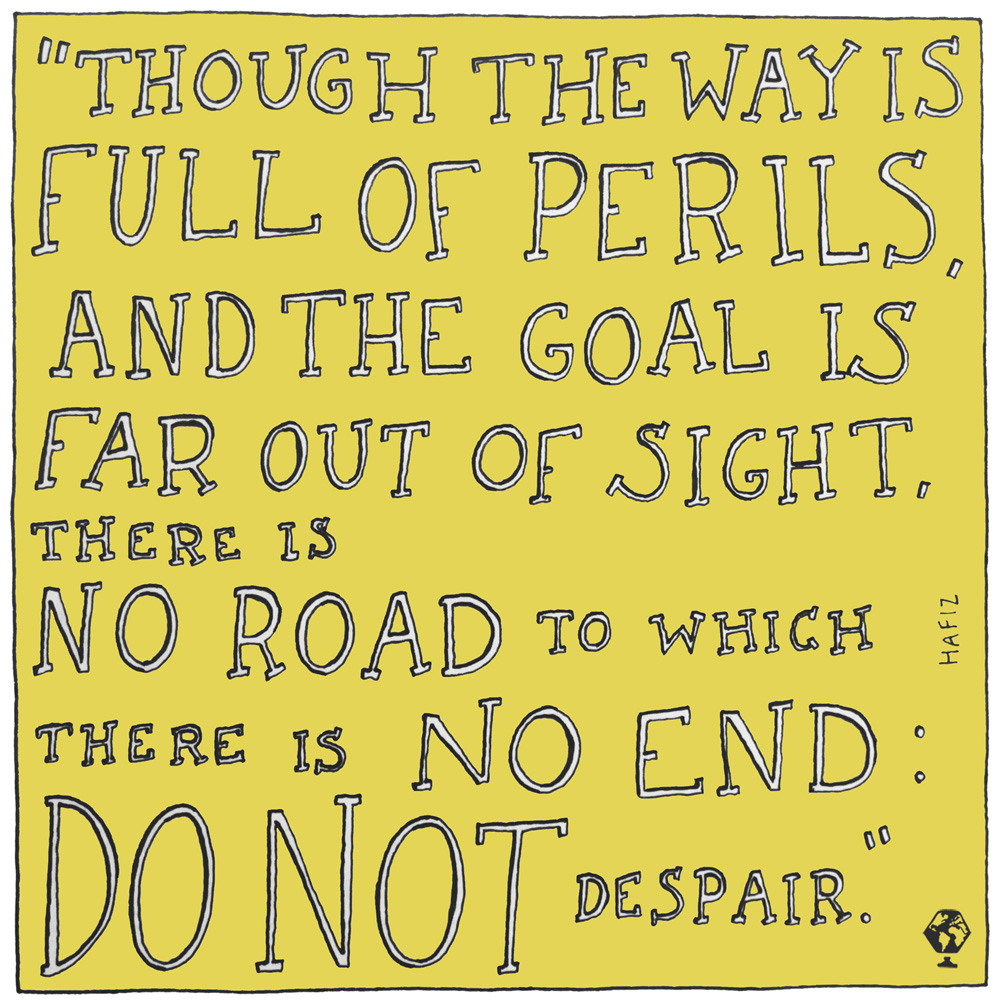 "THOUGH THE WAY IS
FULL OF PERILS,
AND THE GOAL IS
FAR OUT OF SIGHT,
THERE IS
NO ROAD TO WHICH
THERE IS NO END:
DO NOT DESPAIR."
HAFIZ